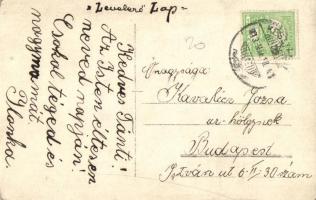 "Levelező Lap"
Kedves Tánti!
Az Isten éltesen
neved napján!
Csokol téged és
nagymamát.
Ilonka.
Őnagysága
Kavalécz Józsa
úr-hölgynek
Budapest
István út 6 II 30 szám
20